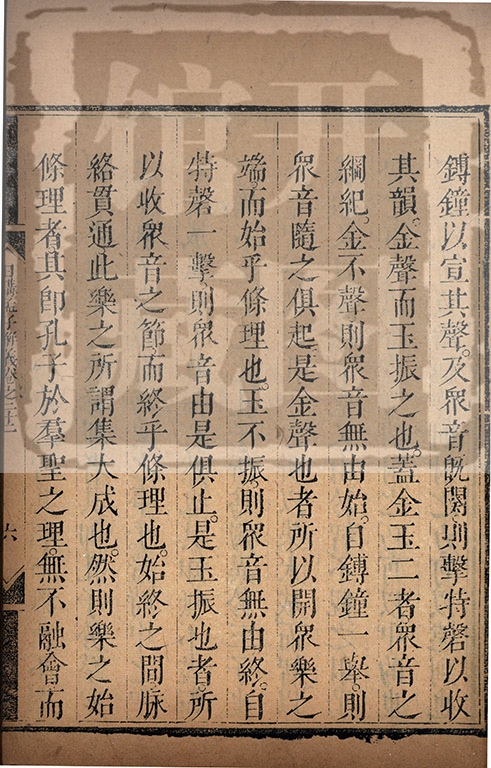 鎛鐘以宣其聲。及衆音旣闋。則擊特磬以收
其韻。金聲而玉振之也。蓋金玉二者衆音之
綱紀。金不聲則衆音無由始。自鎛鐘一舉。則
衆音隨之俱起。是金聲也者所以開衆樂之
端。而始乎條理也。玉不振。則衆音無由終。自
特磬一擊。則衆音由是俱止。是玉振也者。所
以收衆音之節。而終乎條理也。始終之間脉
絡貫通此樂之所謂集大成也。然則樂之始
條理者其卽孔子於羣聖之理。無不融會而
日講孟子解義卷之二十二
六